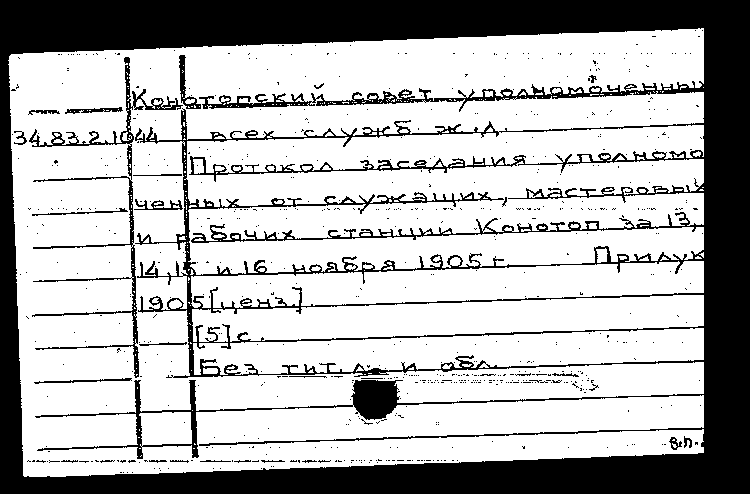 Конотопский совет уполномоченных
34.83.2.1044 всех служб ж.д.
Протокол заседания уполномо
ченных от служащих, мастеровых
и рабочих станции Конотоп за 13,
14,15 и 16 ноября 1905 г. Прилук
1905[ценз.].
[5]с.
Без тит. л. и обл.
в.п.